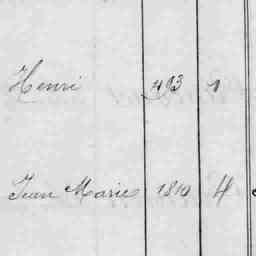 Henri 493 1
Jean Marie 1810 4